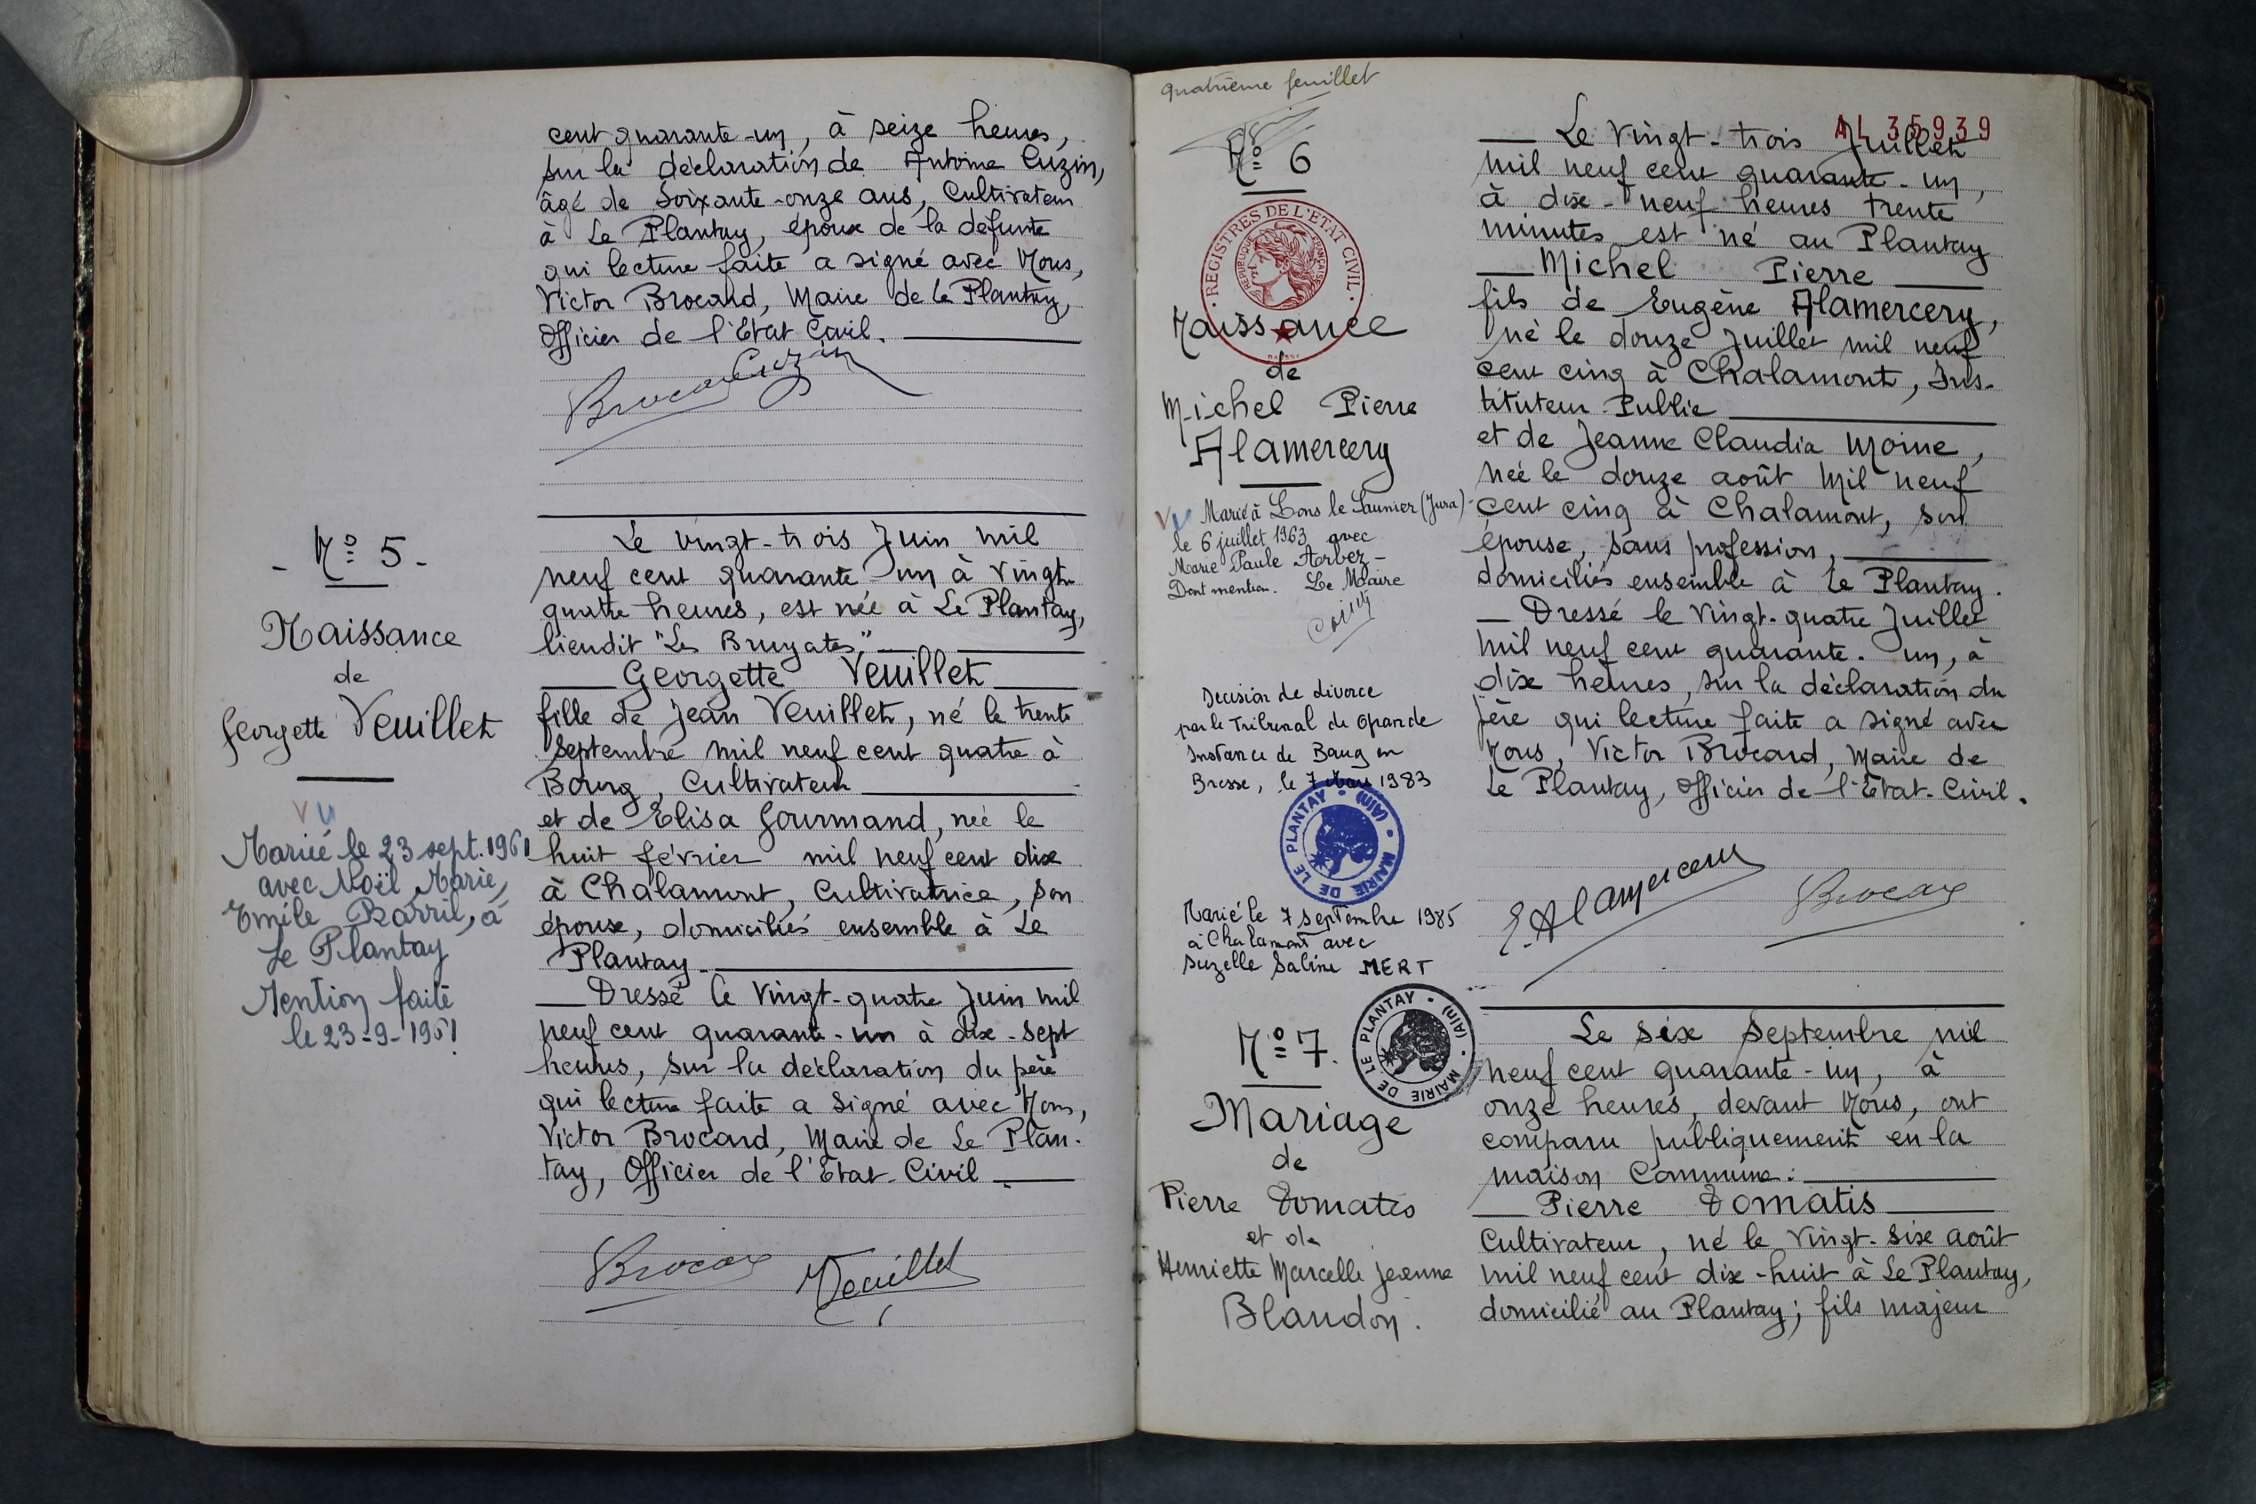 cent quarante-un, à seize heures,
sur la déclaration de Antoine Cuzin,
âgé de Soixante-onze ans, Cultivateur
à Le Plantay, époux de la défunte
qui lecture faite a signé avec Nous,
Victor Brocard, Maire de Le Plantay,
Officier de l'Etat Civil.
Brocard Cuzin
- N° 5 -
Naissance
de
Georgette Veuillet
vu
Mariée le 23 sept. 1961
avec Noël, Marie,
Emile Barril, à
Le Plantay
Mention faite
le 23-9-1961
Le vingt-trois Juin mil
neuf cent quarante-un à vingt-
quatre heures, est née à Le Plantay,
lieudit "Les Bruyates,"
Georgette Veuillet
fille de Jean Veuillet, né le trente
septembre mil neuf cent quatre à
Bourg, Cultivateur
et de Elisa Gourmand, née le
huit février mil neuf cent dix
à Chalamont, Cultivatrice, son
épouse, domiciliés ensemble à Le
Plantay
Dressé le Vingt-quatre Juin mil
neuf cent quarante-un à dix-sept
heures, sur la déclaration du père
qui lecture faite a signé avec Nous,
Victor Brocard, Maire de Le Plan-
tay, Officier de l'Etat-Civil
Brocard Veuillet
quatrième feuillet
N° 6
REGISTRES DE L'ETAT CIVIL
REPUBLIQUE FRANÇAISE
Naissance
de
Michel Pierre
Alamercery
vu Marié à Lons le Saunier (Jura)
le 6 juillet 1963 avec
Marie Paule Arbez-
Dont mention. Le Maire
Décision de divorce
par le Tribunal de Grande
Instance de Bourg en
Bresse, le 7 Mars 1983
MAIRIE DE LE PLANTAY (AIN)
Marié le 7 septembre 1985
à Chalamont avec
Suzelle Saline MERT
MAIRIE DE LE PLANTAY (AIN)
N° 7.
Mariage
de
Pierre Domatis
et de
Henriette Marcelle Jeanne
Blandon.
AL 35939
Le Vingt-trois Juillet
mil neuf cent quarante-un,
à dix-neuf heures trente
minutes est né au Plantay
Michel Pierre
fils de Eugène Alamercery,
né le douze Juillet mil neuf
cent cinq à Chalamont, Ins-
tituteur Public
et de Jeanne Claudia Moine,
née le douze août Mil neuf
cent cinq à Chalamont, son
épouse, sans profession,
domiciliés ensemble à Le Plantay.
Dressé le Vingt-quatre Juillet
mil neuf cent quarante-un, à
dix heures, sur la déclaration du
père qui lecture faite a signé avec
Nous, Victor Brocard, Maire de
Le Plantay, Officier de l'Etat-Civil.
E. Alamercery Brocard
Le six septembre mil
neuf cent quarante-un, à
onze heures, devant Nous, ont
comparu publiquement en la
maison Commune:
Pierre Domatis
Cultivateur, né le Vingt-six août
mil neuf cent dix-huit à Le Plantay,
domicilié au Plantay; fils majeur